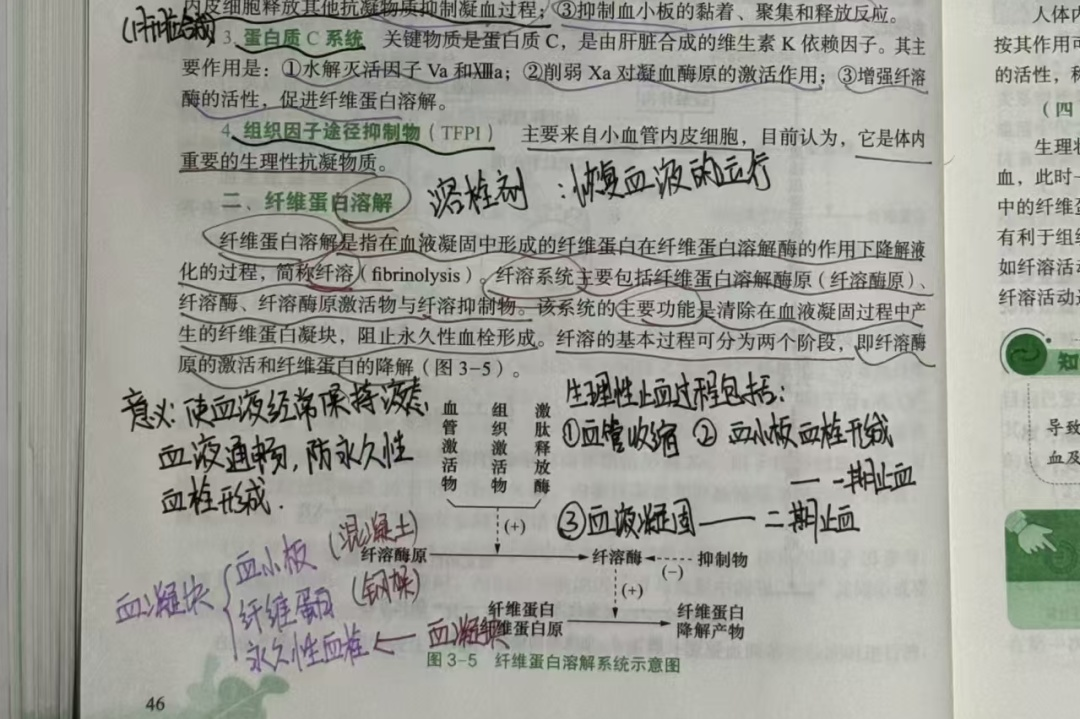 内皮细胞释放其他抗凝物质抑制凝血过程；③抑制血小板的黏着、聚集和释放反应。
(由肝脏合成)
3. 蛋白质 C 系统 关键物质是蛋白质 C，是由肝脏合成的维生素 K 依赖因子。其主
要作用是：①水解灭活因子 Va 和Ⅷa；②削弱 Xa 对凝血酶原的激活作用；③增强纤溶
酶的活性，促进纤维蛋白溶解。
4. 组织因子途径抑制物（TFPI） 主要来自小血管内皮细胞，目前认为，它是体内
重要的生理性抗凝物质。
溶栓剂：恢复血液的运行
二、纤维蛋白溶解
纤维蛋白溶解是指在血液凝固中形成的纤维蛋白在纤维蛋白溶解酶的作用下降解液
化的过程，简称纤溶（fibrinolysis）。纤溶系统主要包括纤维蛋白溶解酶原（纤溶酶原）、
纤溶酶、纤溶酶原激活物与纤溶抑制物。该系统的主要功能是清除在血液凝固过程中产
生的纤维蛋白凝块，阻止永久性血栓形成。纤溶的基本过程可分为两个阶段，即纤溶酶
原的激活和纤维蛋白的降解（图 3-5）。
意义：使血液经常保持液态，
血液通畅，防永久性
血栓形成.
血管激活物
组织激活物
激肽释放酶
生理性止血过程包括：
①血管收缩 ②血小板血栓形成
— 一期止血
③血液凝固 —— 二期止血
(+)
纤溶酶原
纤溶酶
抑制物
(−)
(+)
纤维蛋白
纤维蛋白原
纤维蛋白
降解产物
血凝块
血小板 (混凝土)
纤维蛋白 (钢架)
永久性血栓 ← 血凝块
图 3-5 纤维蛋白溶解系统示意图
46
人体内
按其作用可
的活性，称
（四
生理状
血，此时一
中的纤维蛋
有利于组织
如纤溶活动
纤溶活动过
知
导致
血及